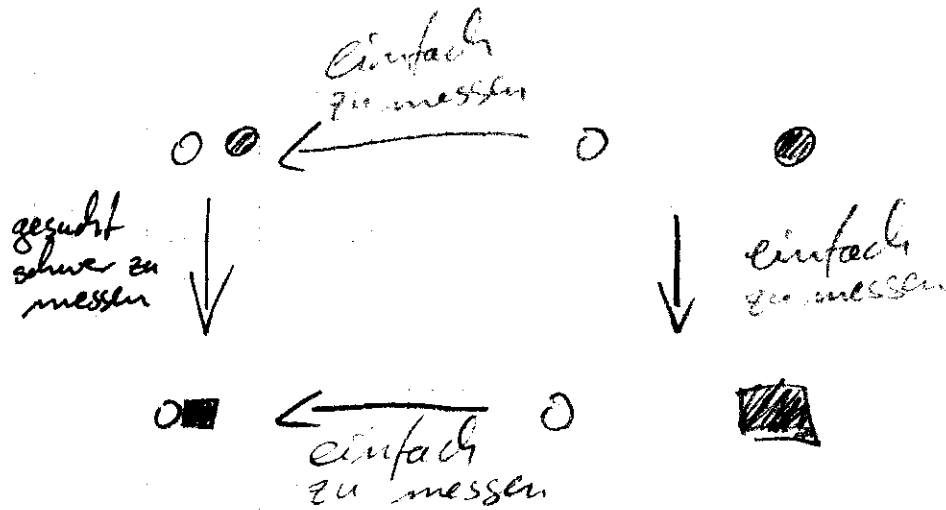 einfach
zu messen
gesucht
schwer zu
messen
einfach
zu messen
einfach
zu messen